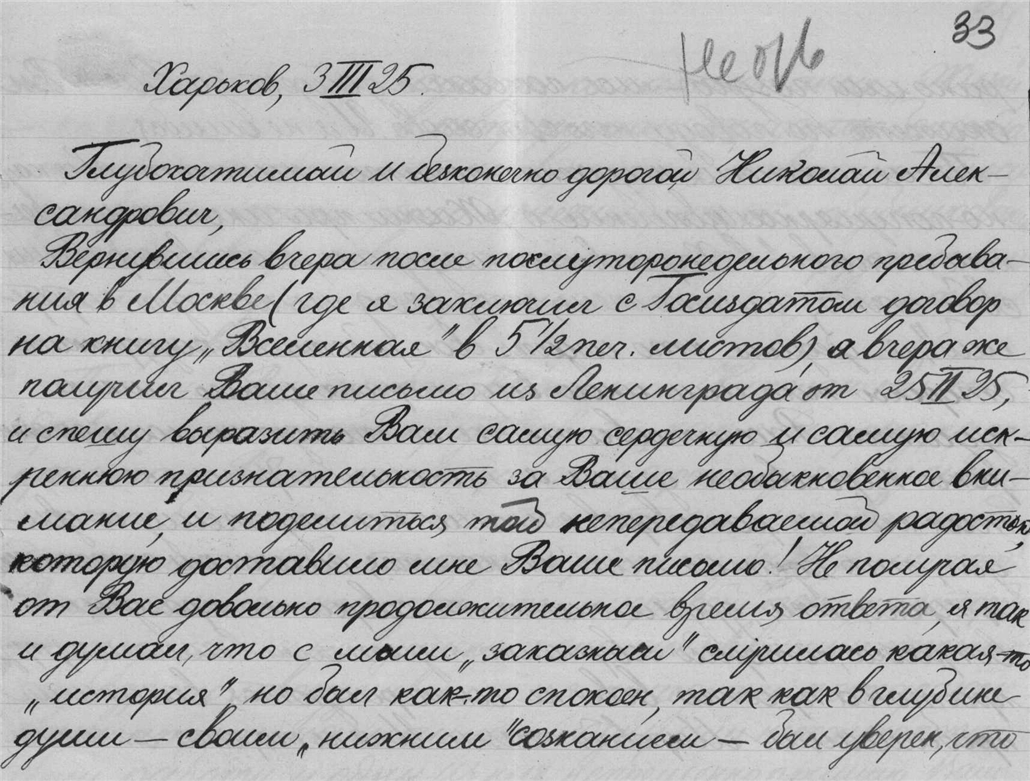 33
Харьков, 3 III 25.
Глубокочтимый и безконечно дорогой Николай Алек-
сандрович,
Вернувшись вчера после послуторонедельного пребыва-
ния в Москве (где я заключил с Госиздатом договор
на книгу „Вселенная" в 5 1/2 печ. листов) я вчера же
получил Ваше письмо из Ленинграда от 25 II 25,
и спешу выразить Вам самую сердечную и самую иск-
реннюю признательность за Ваше необыкновенное вни-
мание, и поделиться той непередаваемой радостью,
которую доставило мне Ваше письмо! Не получая
от Вас довольно продолжительное время ответа, я так
и думал, что с моим „заказным" случилась какая-то
„история", но был как-то спокоен, так как в глубине
души — своим „нижним" сознанием — был уверен, что